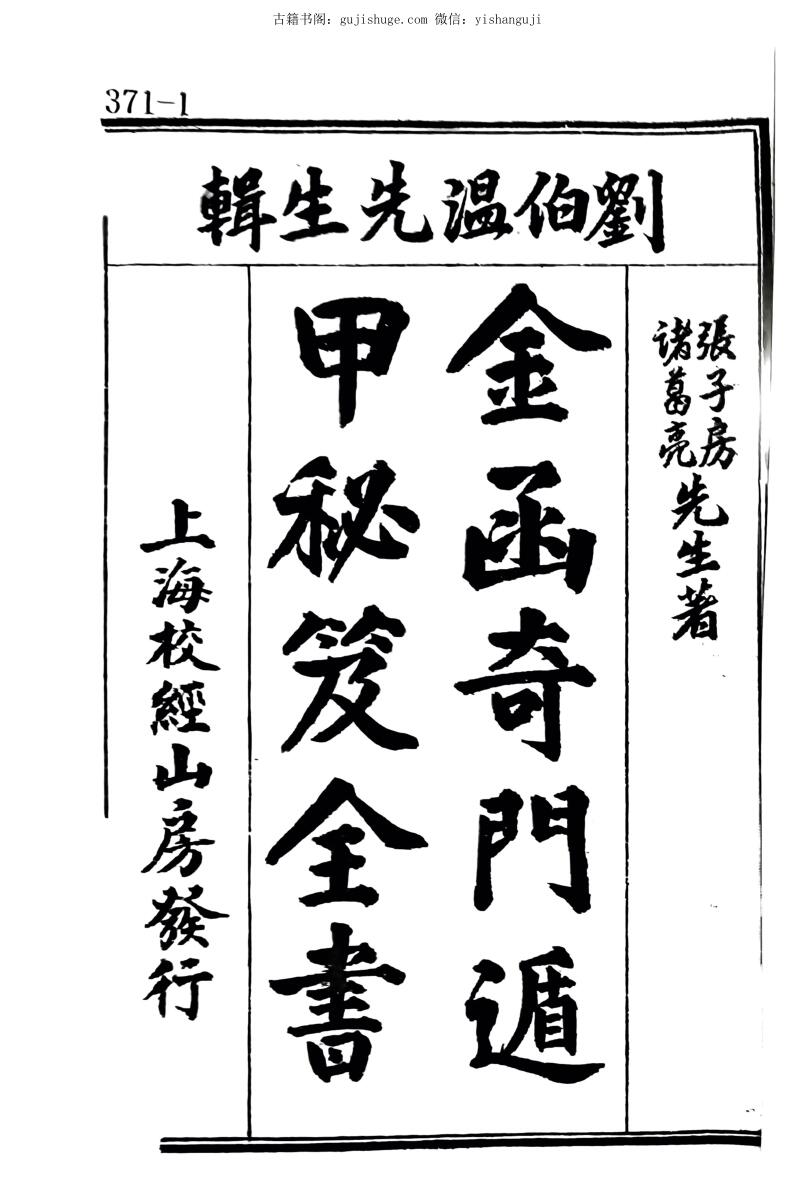 古籍书阁：gujishuge.com 微信：yishanguji
371-1
劉伯温先生輯
張子房
諸葛亮
先生著
金函奇門遁
甲秘笈全書
上海校經山房發行